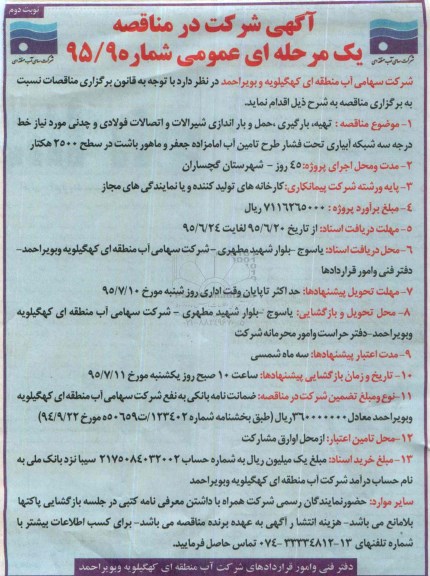 نوبت دوم
آگهی شرکت در مناقصه
یک مرحله ای عمومی شماره ۹۵/۹
شرکت سهامی آب منطقه ای کهگیلویه و بویراحمد در نظر دارد با توجه به قانون برگزاری مناقصات نسبت
به برگزاری مناقصه به شرح ذیل اقدام نماید.
۱- موضوع مناقصه : تهیه، بارگیری ،حمل و بار اندازی شیرالات و اتصالات فولادی و چدنی مورد نیاز خط
درجه سه شبکه آبیاری تحت فشار طرح تامین آب امامزاده جعفر و ماهور باشت در سطح ۲۵۰۰ هکتار
۲- مدت ومحل اجرای پروژه: ۴۵ روز - شهرستان گچساران
۳- پایه ورشته شرکت پیمانکاری: کارخانه های تولید کننده و یا نمایندگی های مجاز
۴- مبلغ برآورد پروژه : ۷۱۱۶۲۶۵۰۰۰ ریال
۵- مهلت دریافت اسناد: از تاریخ ۹۵/۶/۲۰ لغایت ۹۵/۶/۲۴
۶- محل دریافت اسناد: یاسوج -بلوار شهید مطهری - شرکت سهامی آب منطقه ای کهگیلویه وبویراحمد-
دفتر فنی وامور قراردادها
۷- مهلت تحویل پیشنهادها: حداکثر تاپایان وقت اداری روز شنبه مورخ ۹۵/۷/۱۰
۸- محل تحویل و بازگشایی: یاسوج -بلوار شهید مطهری - شرکت سهامی آب منطقه ای کهگیلویه
وبویراحمد-دفتر حراست وامور محرمانه شرکت
۹- مدت اعتبار پیشنهادها: سه ماه شمسی
۱۰- تاریخ و زمان بازگشایی پیشنهادها: ساعت ۱۰ صبح روز یکشنبه مورخ ۹۵/۷/۱۱
۱۱- نوع ومبلغ تضمین شرکت در مناقصه: ضمانت نامه بانکی به نفع شرکت سهامی آب منطقه ای کهگیلویه
وبویراحمد معادل ۳۶۰۰۰۰۰۰۰ ریال (طبق بخشنامه شماره ۱۲۳۴۰۲/ت۵۰۶۵۹ه مورخ ۹۴/۹/۲۲)
۱۲- محل تامین اعتبار: از محل اوراق مشارکت
۱۳- مبلغ خرید اسناد: مبلغ یک میلیون ریال به شماره حساب ۲۱۷۵۰۸۴۰۳۲۰۰۲ سیبا نزد بانک ملی به
نام حساب درآمد شرکت آب منطقه ای کهگیلویه وبویراحمد واریز گردد
سایر موارد: حضور نمایندگان رسمی شرکت همراه با داشتن معرفی نامه کتبی در جلسه بازگشایی پاکتها
بلامانع می باشد- هزینه انتشار آگهی به عهده برنده مناقصه می باشد- برای کسب اطلاعات بیشتر با
شماره تلفنهای ۱۳-۳۳۳۳۴۸۱۲-۰۷۴ تماس حاصل فرمایید.
دفتر فنی وامور قراردادهای شرکت آب منطقه ای کهگیلویه وبویراحمد